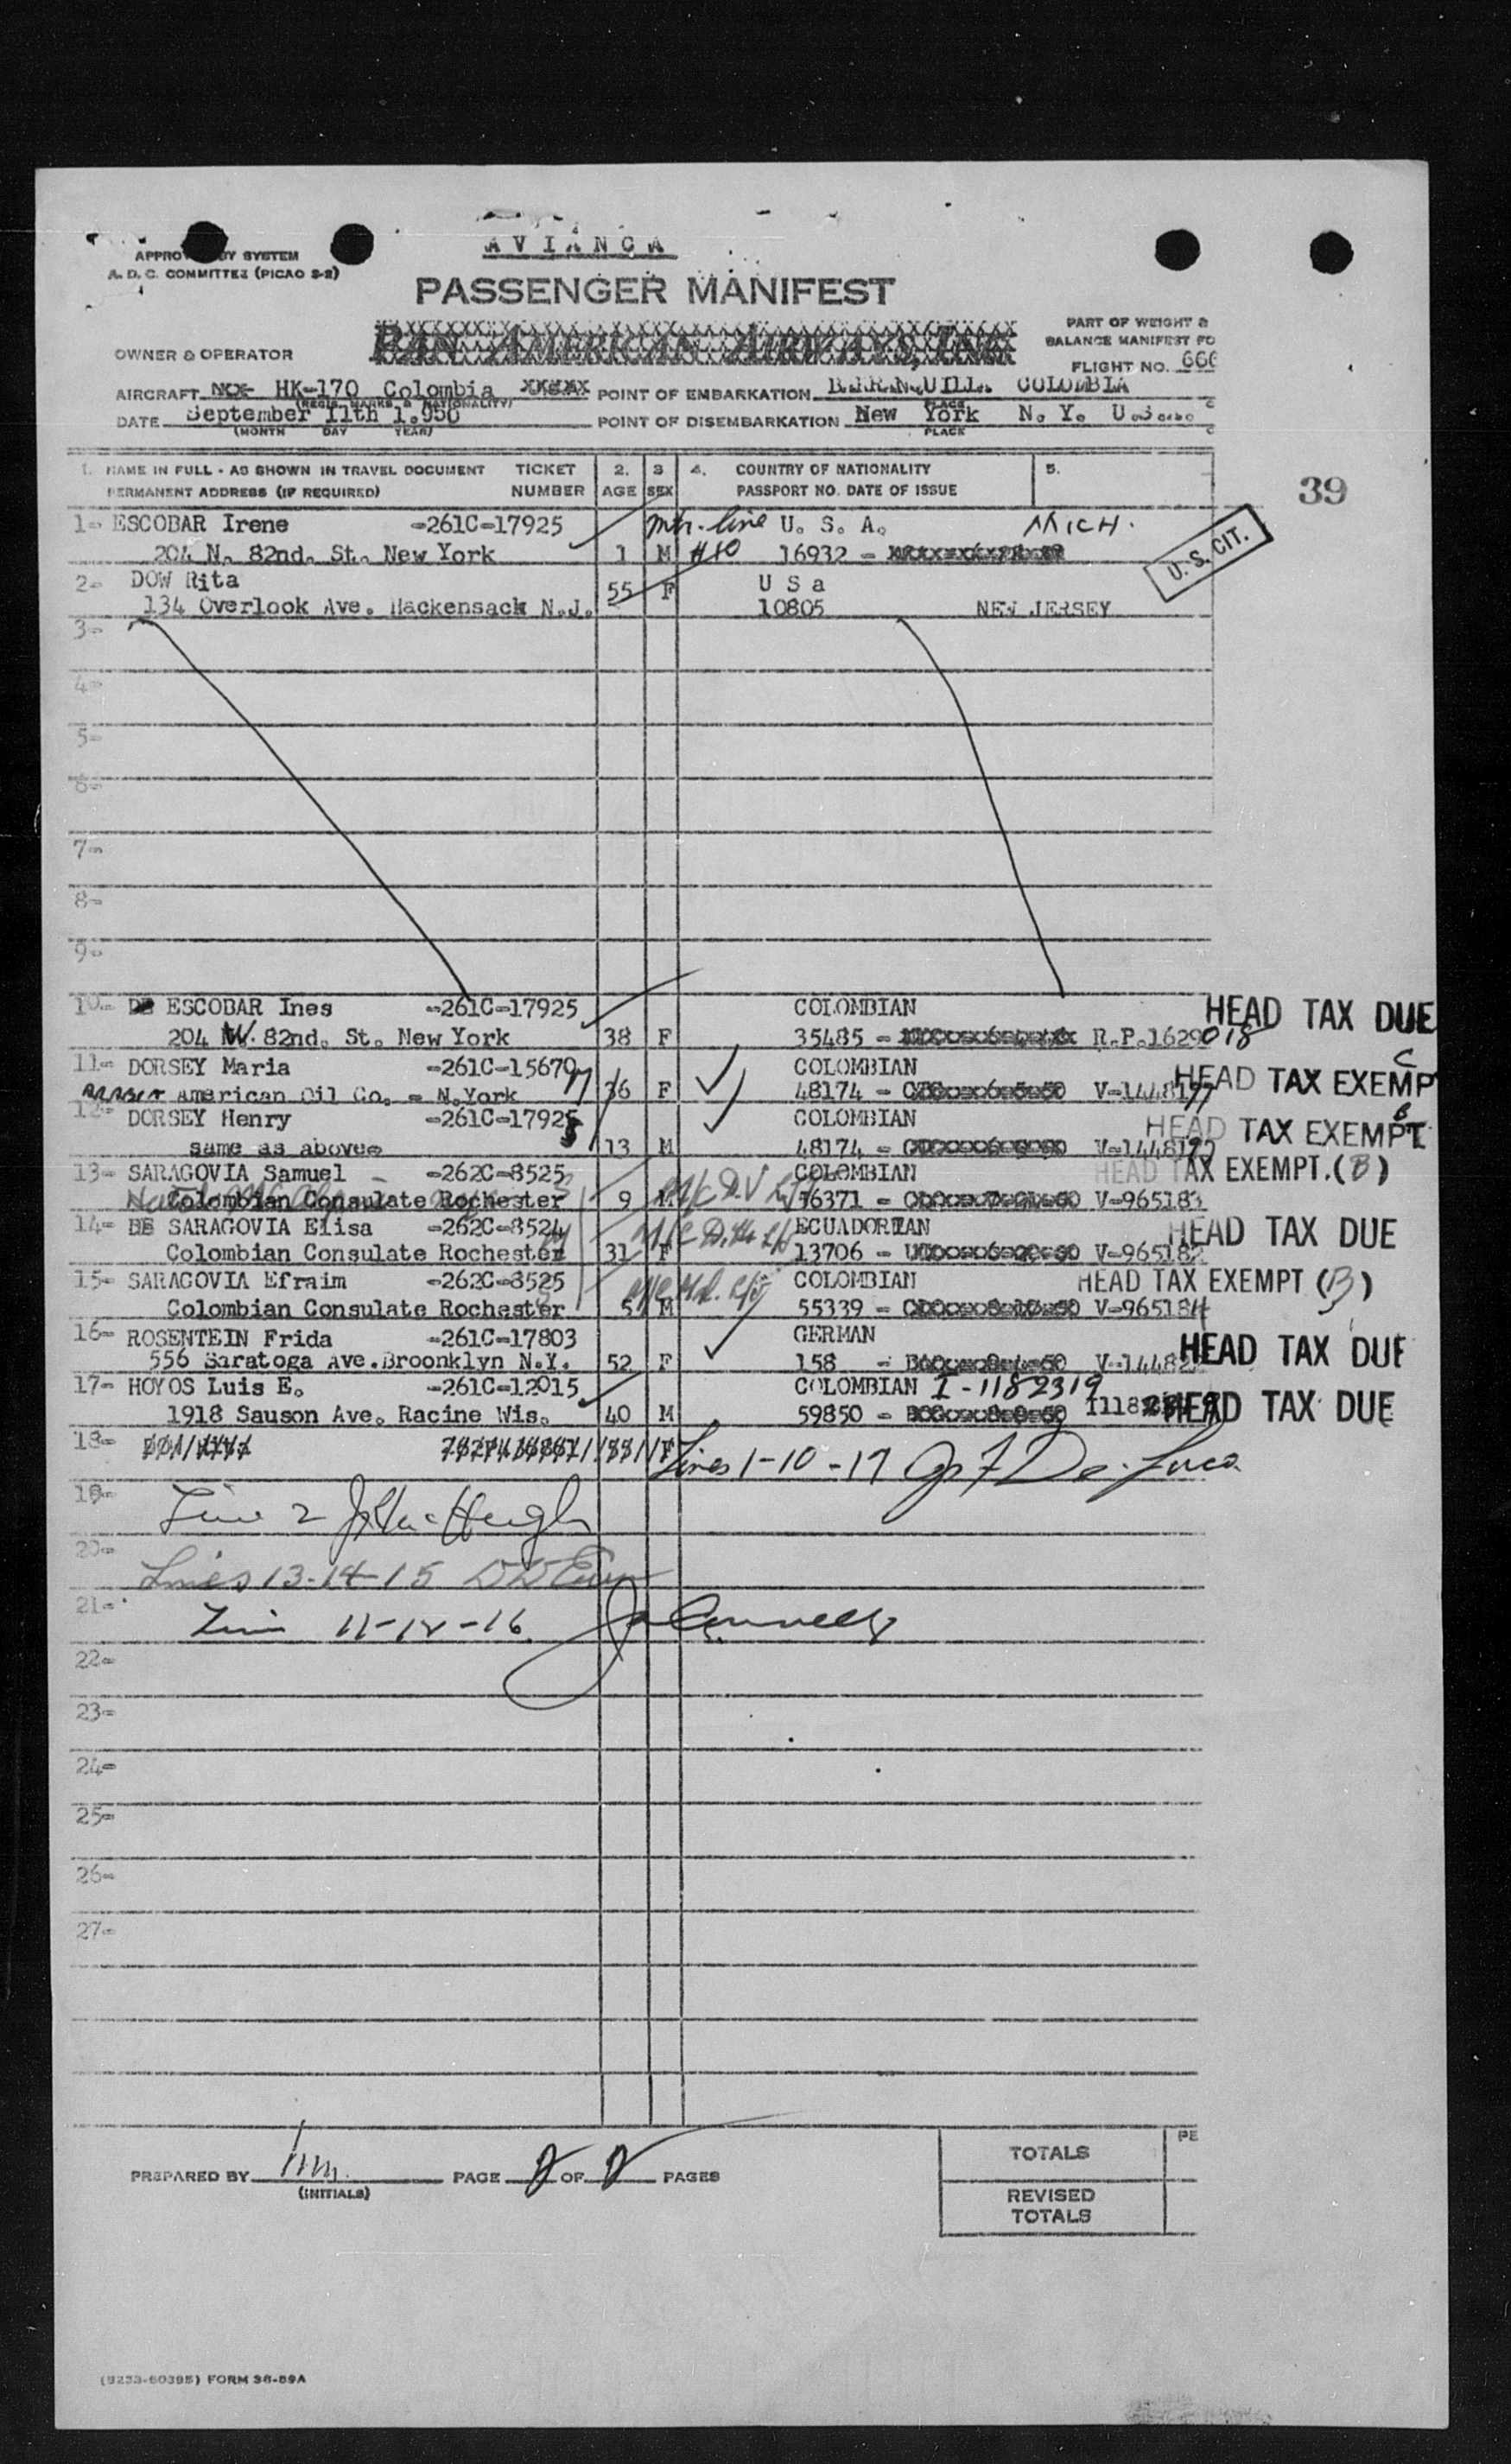 AVIANCA
A. D. C. COMMITTEE (PICAO S-2)
PASSENGER MANIFEST
PAN AMERICAN AIRWAYS, INC
OWNER & OPERATOR
PART OF WEIGHT &
BALANCE MANIFEST FO
FLIGHT NO. 666
AIRCRAFT HK-170 Colombia POINT OF EMBARKATION BARRANQUILLA COLOMBIA
(REGIS. MARKS & NATIONALITY) PLACE
DATE September 11th 1.950 POINT OF DISEMBARKATION New York N. Y. U.S.
(MONTH DAY YEAR) PLACE
1. NAME IN FULL - AS SHOWN IN TRAVEL DOCUMENT TICKET 2. 3 4. COUNTRY OF NATIONALITY 5.
PERMANENT ADDRESS (IF REQUIRED) NUMBER AGE SEX PASSPORT NO. DATE OF ISSUE
39
1- ESCOBAR Irene -261C-17925 U. S. A. MICH.
204 N. 82nd. St. New York 1 M #10 16932 -
U. S. CIT.
2- DOW Rita 55 F U S a
134 Overlook Ave. Hackensack N.J. 10805 NEW JERSEY
3-
4-
5-
6-
7-
8-
9-
10- DE ESCOBAR Ines -261C-17925 COLOMBIAN HEAD TAX DUE
204 W. 82nd. St. New York 38 F 35485 - R.P.1629018
11- DORSEY Maria -261C-15670 COLOMBIAN C
American Oil Co. - N.York 36 F 48174 - V-1448197 HEAD TAX EXEMP
12- DORSEY Henry -261C-17925 COLOMBIAN HEAD TAX EXEMPT B
same as above 13 M 48174 -
13- SARAGOVIA Samuel -262C-8525 COLOMBIAN HEAD TAX EXEMPT. (B)
Colombian Consulate Rochester 9 M 56371 - V-965183
14- DE SARAGOVIA Elisa -262C-8524 ECUADORIAN HEAD TAX DUE
Colombian Consulate Rochester 31 F 13706 - V-965182
15- SARAGOVIA Efraim -262C-8525 COLOMBIAN HEAD TAX EXEMPT (B)
Colombian Consulate Rochester 5 M 55339 - V-965184
16- ROSENTEIN Frida -261C-17803 GERMAN HEAD TAX DUE
556 Saratoga Ave.Broonklyn N.Y. 52 F 158 -
17- HOYOS Luis E. -261C-12015 COLOMBIAN I-1182319
1918 Sauson Ave. Racine Wis. 40 M 59850 - HEAD TAX DUE
18- Lines 1-10-17
19- Line 2
20- Lines 13-14-15
21- 11-12-16
22-
23-
24-
25-
26-
27-
PREPARED BY PAGE 2 OF 2 PAGES
(INITIALS)
TOTALS PE
REVISED
TOTALS
(9233-60395) FORM 36-89A